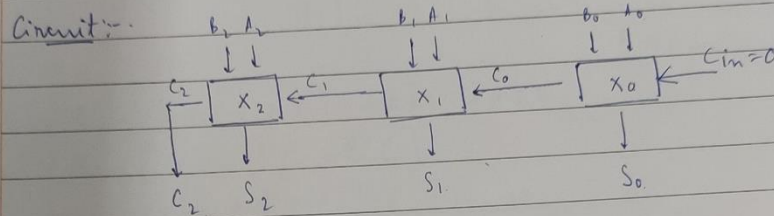 Circuit:-
B2 A2 B1 A1 B0 A0
C2 X2 C1 X1 C0 X0 Cin=0
C2 S2 S1 S0